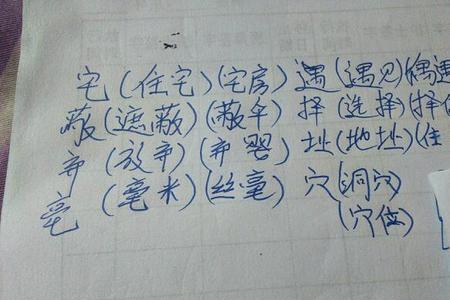 宅(住宅)(宅房) 遇(遇见)(偶遇
蔽(遮蔽)(蔽伞) 择(选择)(择
弃(放弃)(弃婴) 址(地址)(住
毫(毫米)(丝毫) 穴(洞穴)
(穴位)